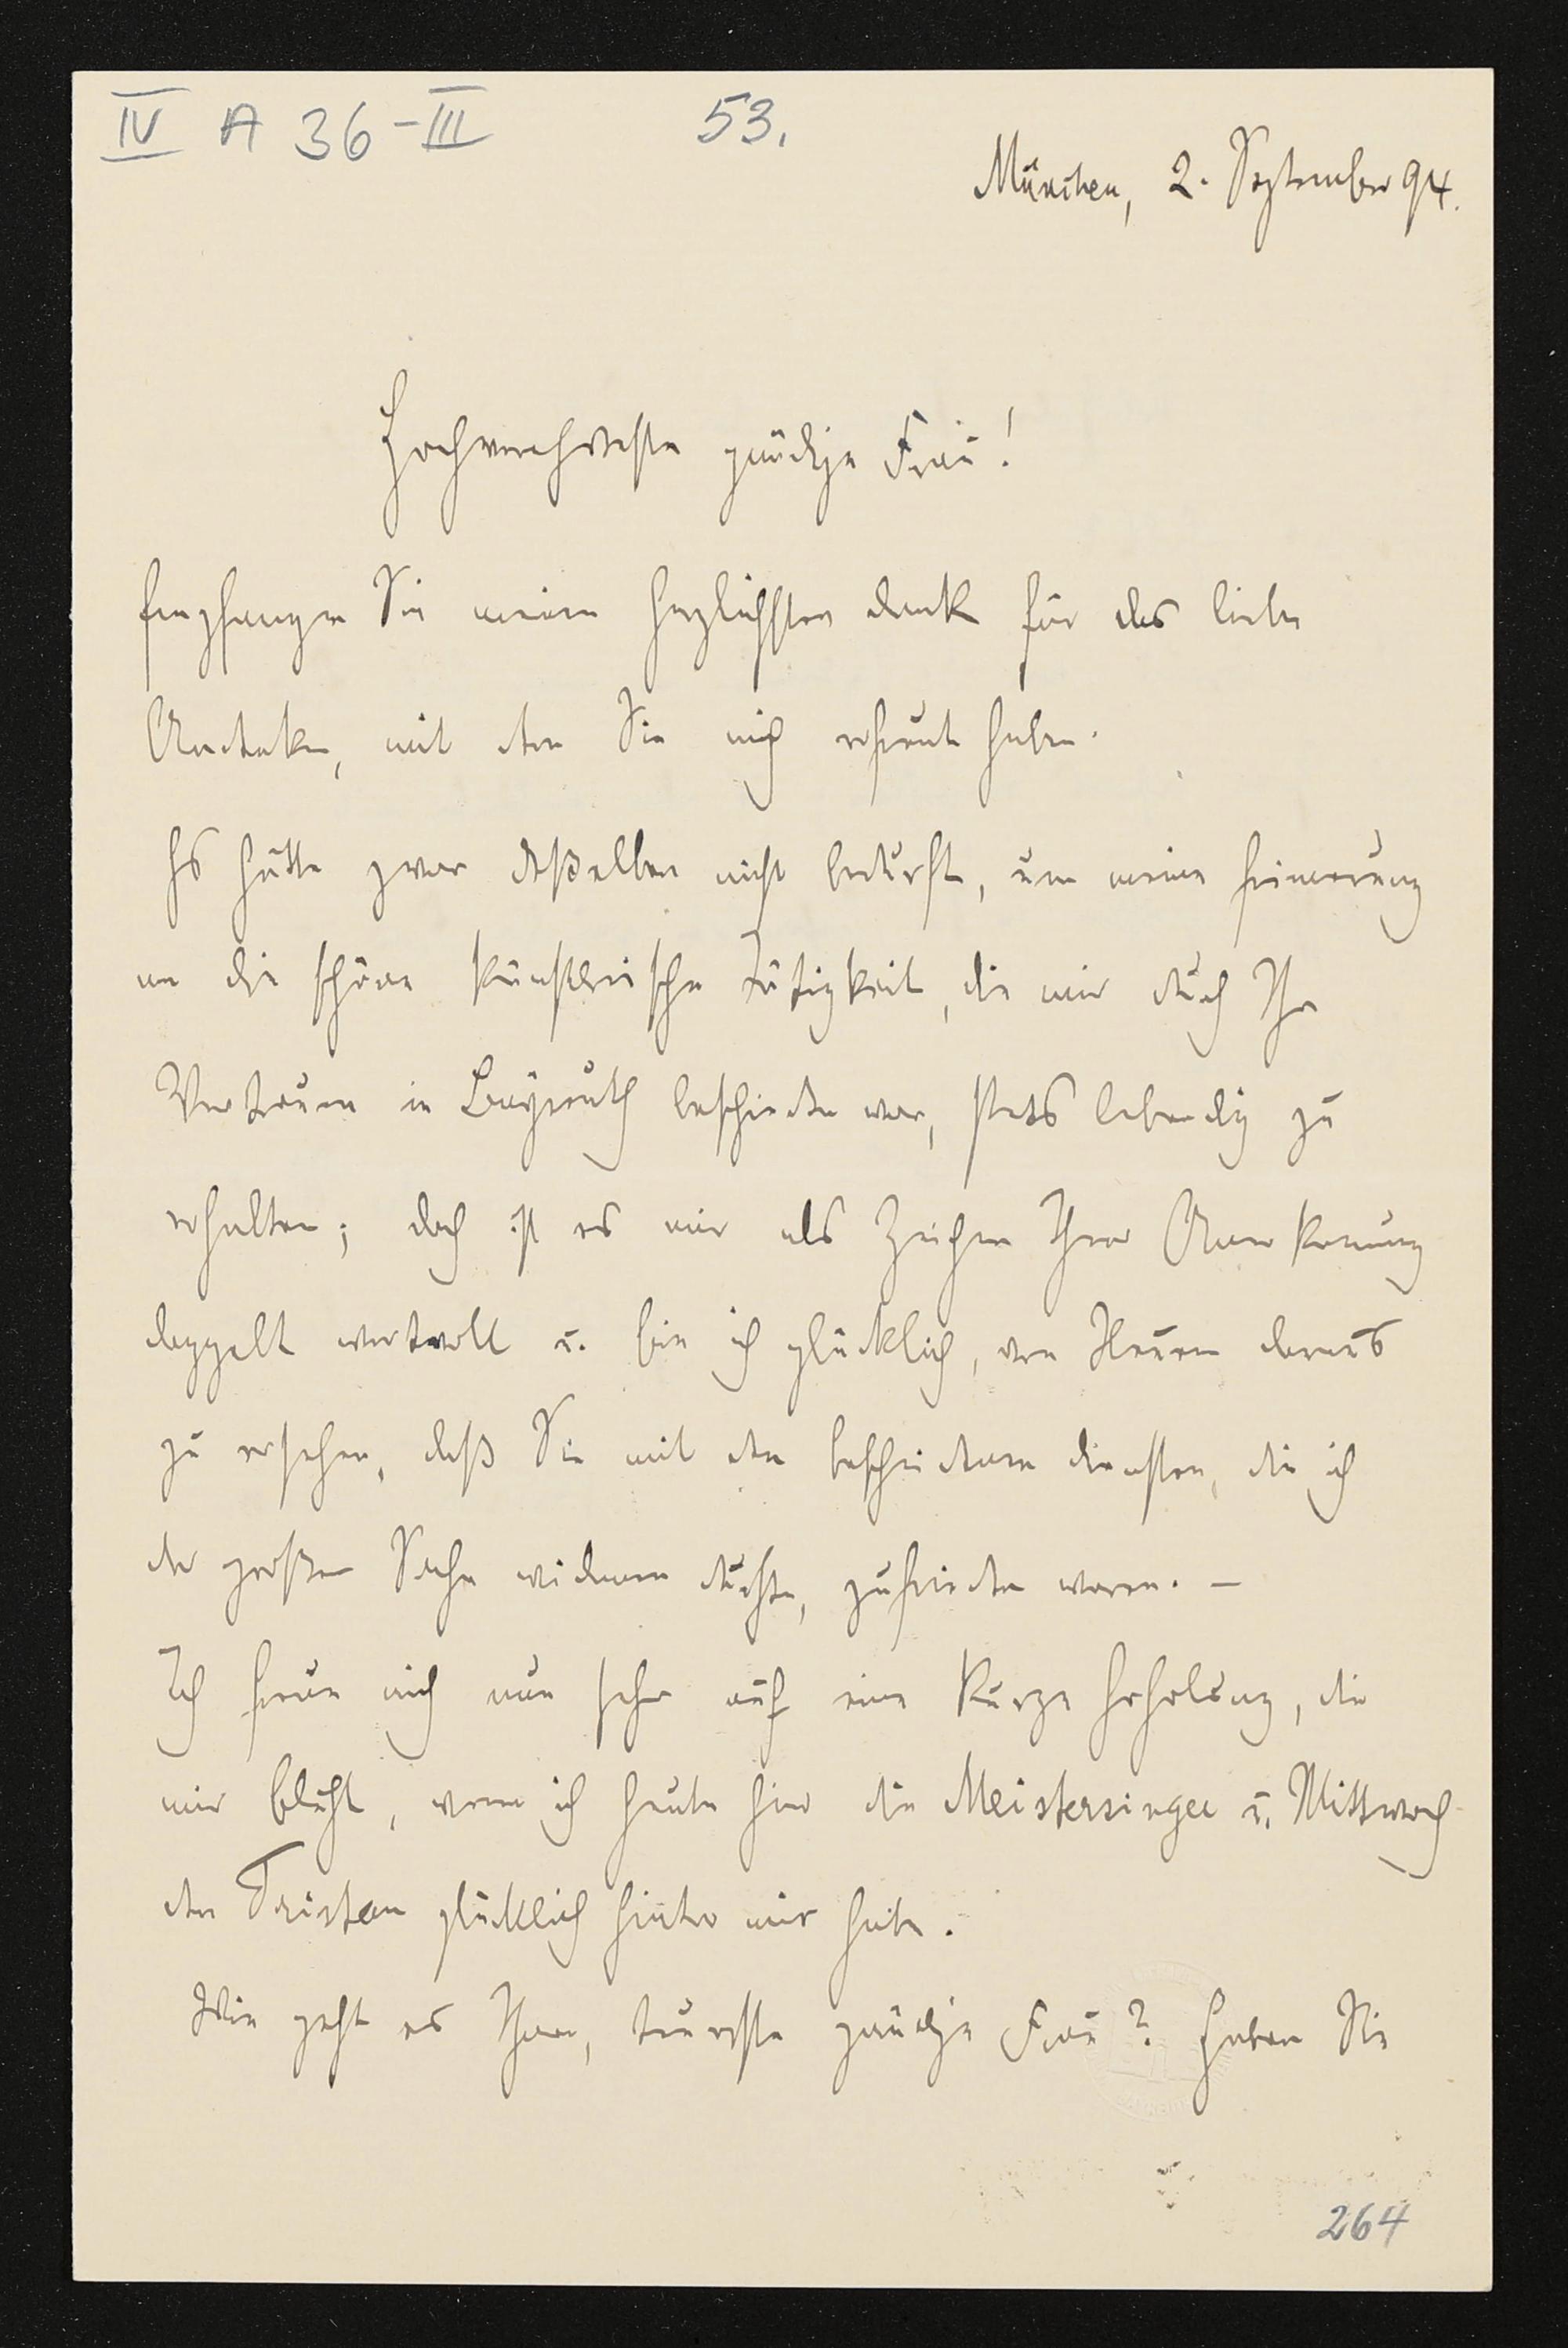 IV A 36-III 53.
München, 2. September 94.
Hochverehrteste gnädige Frau!
Empfangen Sie meinen herzlichsten Dank für das liebe
Andenken, mit dem Sie mich erfreut haben.
Es hätte zwar deßelben nicht bedurft, um meine Erinnerung
an die schöne künstlerische Tätigkeit, die mir durch Ihr
Vertrauen in Bayreuth beschieden war, stets lebendig zu
erhalten; doch ist es mir als Zeichen Ihrer Anerkennung
doppelt wertvoll u. bin ich glücklich, von Neuem daraus
zu ersehen, daß Sie mit den bescheidenen Diensten, die ich
der großen Sache widmen durfte, zufrieden waren. –
Ich freue mich nun sehr auf eine kurze Erholung, die
mir blüht, wenn ich heute hier die Meistersinger u. Mittwoch
den Tristan glücklich hinter mir habe.
Wie geht es Ihnen, teuerste gnädige Frau? Haben Sie
264